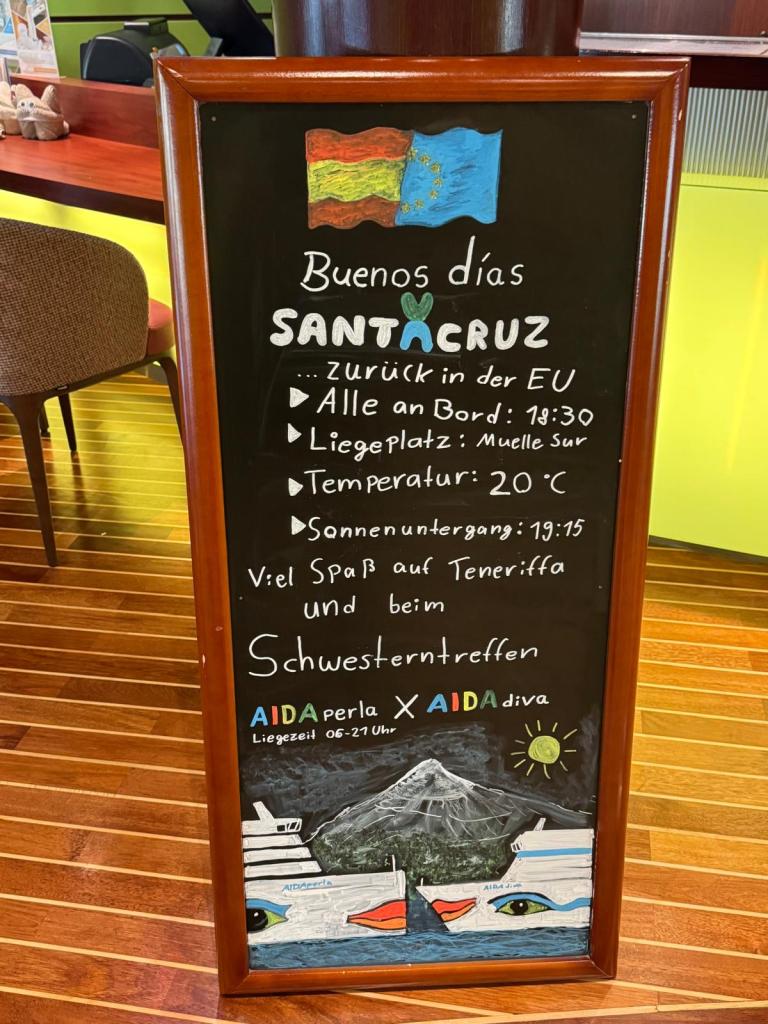 Buenos días
SANTACRUZ
... zurück in der EU
Alle an Bord: 18:30
Liegeplatz: Muelle Sur
Temperatur: 20 °C
Sonnenuntergang: 19:15
Viel Spaß auf Teneriffa
und beim
Schwesterntreffen
AIDAperla X AIDAdiva
Liegezeit 06-21 Uhr
AIDAperla
AIDAdiva